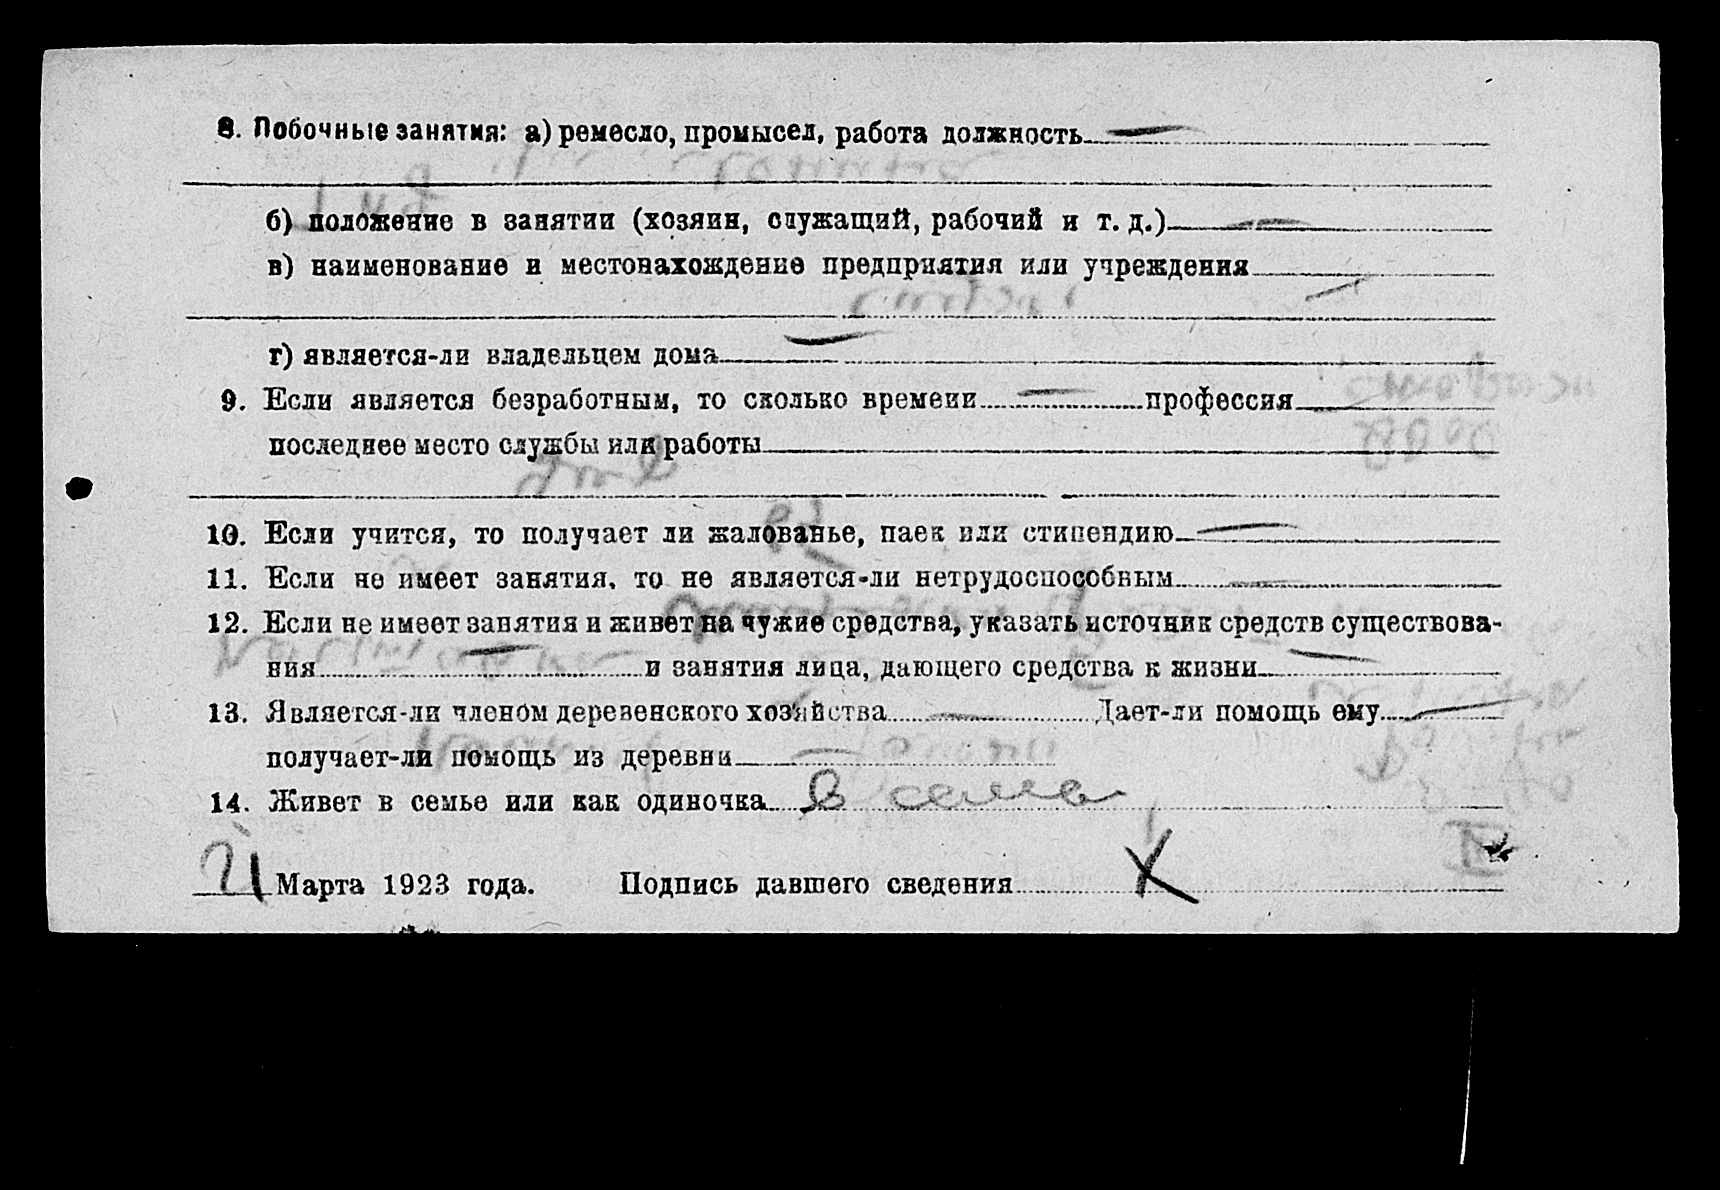 8. Побочные занятия: а) ремесло, промысел, работа должность —
б) положение в занятии (хозяин, служащий, рабочий и т. д.) —
в) наименование и местонахождение предприятия или учреждения —
г) является-ли владельцем дома —
9. Если является безработным, то сколько времени — профессия
последнее место службы или работы
10. Если учится, то получает ли жалованье, паек или стипендию —
11. Если не имеет занятия, то не является-ли нетрудоспособным —
12. Если не имеет занятия и живет на чужие средства, указать источник средств существова-
ния — и занятия лица, дающего средства к жизни —
13. Является-ли членом деревенского хозяйства — Дает-ли помощь ему —
получает-ли помощь из деревни —
14. Живет в семье или как одиночка В семье
21 Марта 1923 года. Подпись давшего сведения X